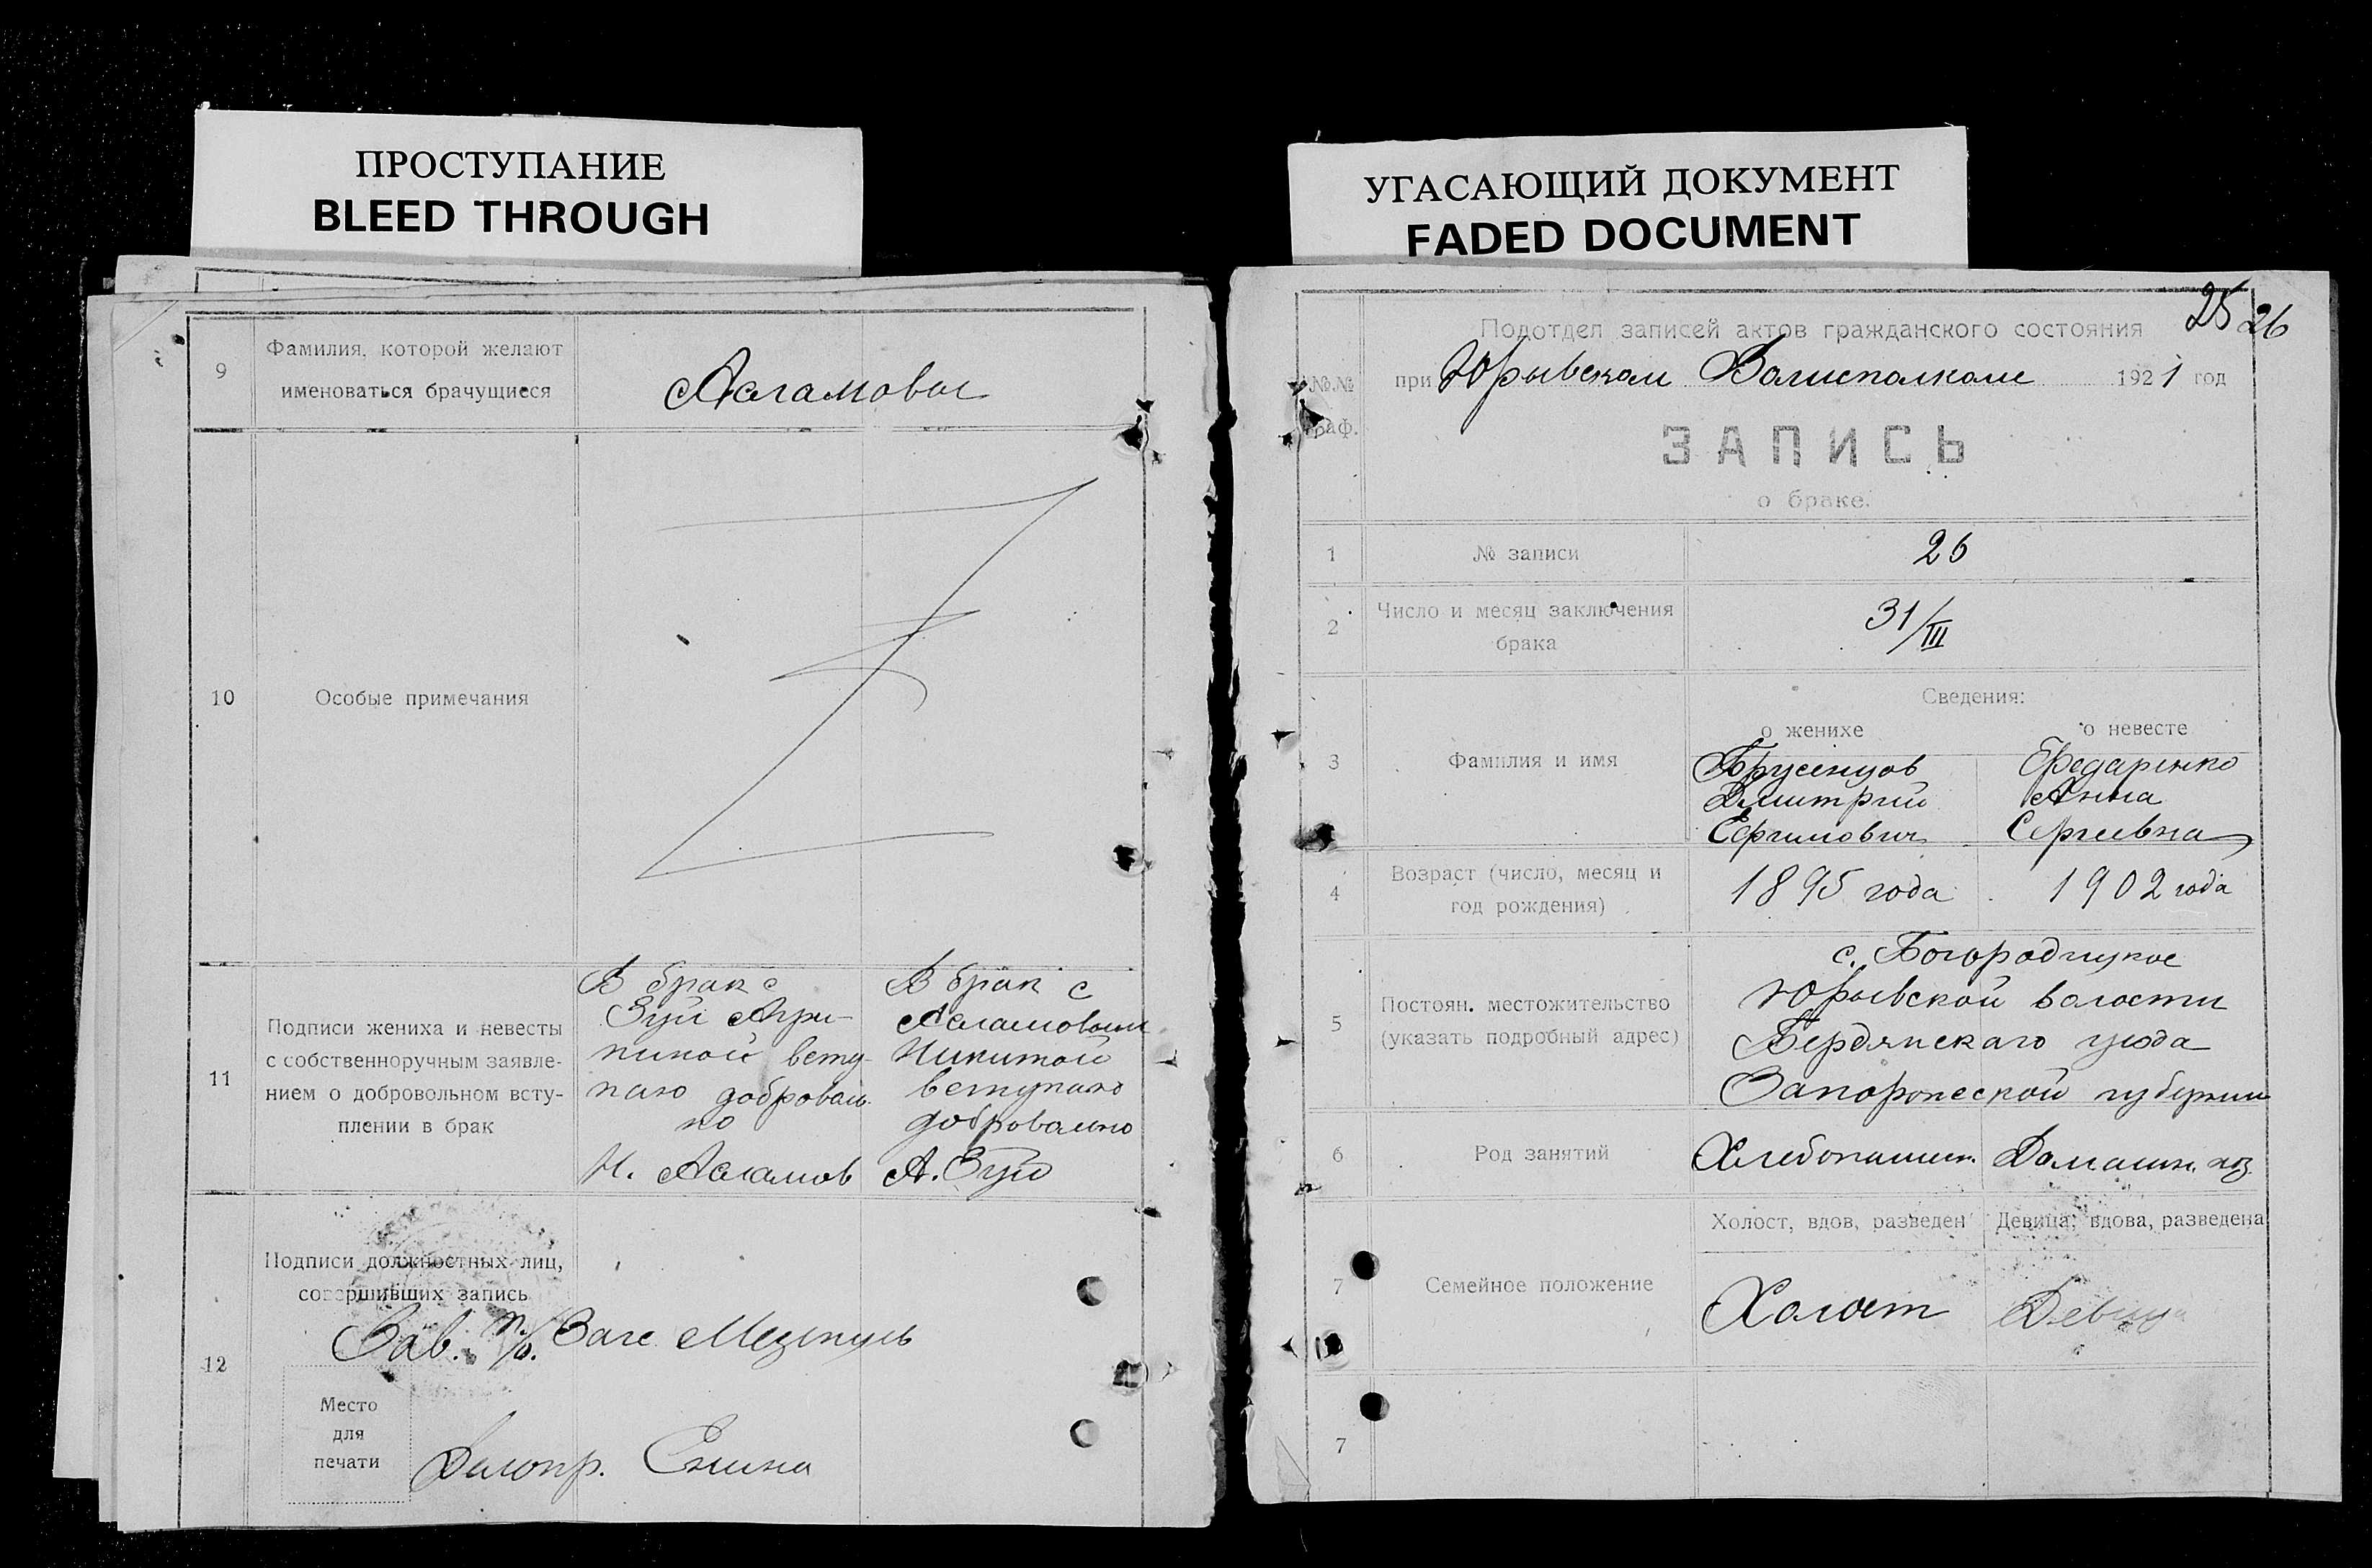 ПРОСТУПАНИЕ
BLEED THROUGH
9
Фамилия, которой желают
именоваться брачущиеся
Асламовы
10
Особые примечания
11
Подписи жениха и невесты
с собственноручным заявле-
нием о добровольном всту-
плении в брак
В брак с
Зуй Агри-
пиной всту-
паю добровол
но
Н. Асламов
В брак с
Асламовым
Никитой
вступаю
добровольно
А. Зуй
12
Подписи должностных лиц,
совершивших запись
Зав. п/о. Загс
Место
для
печати
Делопр. Енина
УГАСАЮЩИЙ ДОКУМЕНТ
FADED DOCUMENT
25 26
Подотдел записей актов гражданского состояния
№№
граф.
при Юрьевском Волисполкоме 1921 год
ЗАПИСЬ
о браке.
1
№ записи
26
2
Число и месяц заключения
брака
31/III
Сведения:
о женихе
о невесте
3
Фамилия и имя
Брусенцов
Дмитрий
Ефимович
Федаренко
Анна
Сергеевна
4
Возраст (число, месяц и
год рождения)
1895 года
1902 года
5
Постоян. местожительство
(указать подробный адрес)
с. Богородицкое
Юрьевской волости
Бердянскаго уезда
Запорожской губернии
6
Род занятий
Хлебопашец.
Домашн. хоз.
7
Семейное положение
Холост, вдов, разведен
Девица, вдова, разведена
Холост
Девица
7